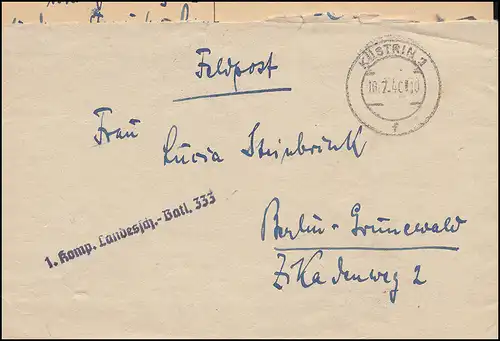 Feldpost
KÜSTRIN 1
f
Frau
Lucia Steinbrink
1. Komp. Landessch.-Batl. 333
Berlin-Grunewald
Zikadenweg 2